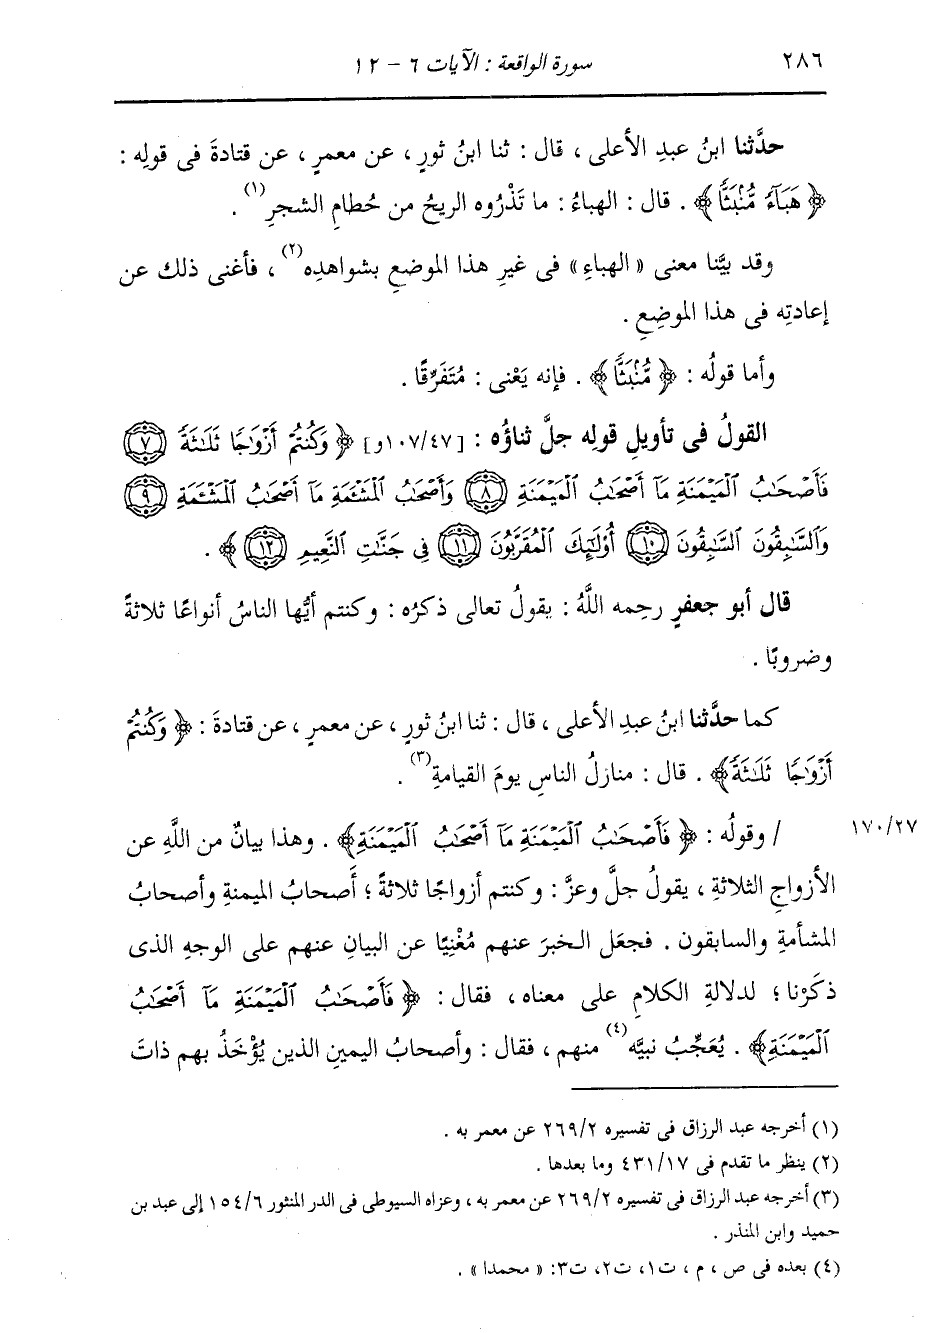 ٢٨٦ سورة الواقعة : الآيات ٦ - ١٢
حدَّثنا ابنُ عبدِ الأعلى ، قال : ثنا ابنُ ثورٍ ، عن معمرٍ ، عن قتادةَ فى قولِه :
﴿ هَبَآءً مُّنۢبَثًّا ﴾ . قال : الهباءُ : ما تَذْرُوه الريحُ من حُطامِ الشجرِ(١) .
وقد بيَّنا معنى « الهباءِ » فى غيرِ هذا الموضعِ بشواهدِه(٢) ، فأغنى ذلك عن
إعادتِه فى هذا الموضِعِ .
وأما قولُه : ﴿ مُّنۢبَثًّا ﴾ . فإنه يَعْنى : مُتَفَرِّقًا .
القولُ فى تأويلِ قولِه جلَّ ثناؤُه : [١٠٧/٤٧و] ﴿ وَكُنتُمْ أَزْوَٰجًا ثَلَـٰثَةً ٧
فَأَصْحَـٰبُ ٱلْمَيْمَنَةِ مَآ أَصْحَـٰبُ ٱلْمَيْمَنَةِ ٨ وَأَصْحَـٰبُ ٱلْمَشْـَٔمَةِ مَآ أَصْحَـٰبُ ٱلْمَشْـَٔمَةِ ٩
وَٱلسَّـٰبِقُونَ ٱلسَّـٰبِقُونَ ١٠ أُوْلَـٰٓئِكَ ٱلْمُقَرَّبُونَ ١١ فِى جَنَّـٰتِ ٱلنَّعِيمِ ١٢ ﴾ .
قال أبو جعفرٍ رحِمه اللَّهُ : يقولُ تعالى ذكرُه : وكنتم أيُّها الناسُ أنواعًا ثلاثةً
وضروبًا .
كما حدَّثنا ابنُ عبدِ الأعلى ، قال : ثنا ابنُ ثورٍ ، عن معمرٍ ، عن قتادةَ : ﴿ وَكُنتُمْ
أَزْوَٰجًا ثَلَـٰثَةً ﴾ . قال : منازلُ الناسِ يومَ القيامةِ(٣) .
١٧٠/٢٧ / وقولُه : ﴿ فَأَصْحَـٰبُ ٱلْمَيْمَنَةِ مَآ أَصْحَـٰبُ ٱلْمَيْمَنَةِ ﴾ . وهذا بيانٌ من اللَّهِ عن
الأزواجِ الثلاثةِ ، يقولُ جلَّ وعزَّ : وكنتم أزواجًا ثلاثةً ؛ أَصحابُ الميمنةِ وأصحابُ
المشأمةِ والسابقون . فجعَل الخبرَ عنهم مُغْنِيًا عن البيانِ عنهم على الوجهِ الذى
ذكَرْنا ؛ لدلالةِ الكلامِ على معناه ، فقال : ﴿ فَأَصْحَـٰبُ ٱلْمَيْمَنَةِ مَآ أَصْحَـٰبُ
ٱلْمَيْمَنَةِ ﴾ . يُعَجِّبُ نبيَّه(٤) منهم ، فقال : وأصحابُ اليمينِ الذين يُؤْخَذُ بهم ذاتَ
(١) أخرجه عبد الرزاق فى تفسيره ٢٦٩/٢ عن معمر به .
(٢) ينظر ما تقدم فى ٤٣١/١٧ وما بعدها .
(٣) أخرجه عبد الرزاق فى تفسيره ٢٦٩/٢ عن معمر به ، وعزاه السيوطى فى الدر المنثور ١٥٤/٦ إلى عبد بن
حميد وابن المنذر .
(٤) بعده فى ص ، م ، ت١، ت٢، ت٣: « محمدا » .